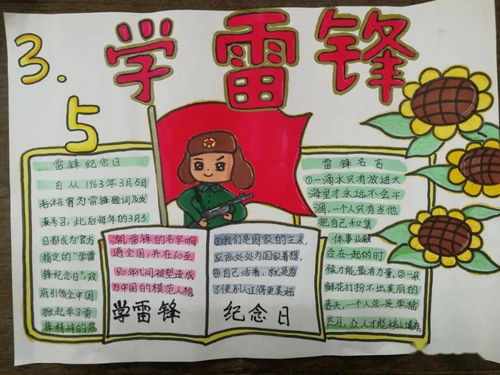 3.5
学雷锋
雷锋纪念日
自从1963年3月5日
毛东省为雷锋题词及成
湊号召,此后每年的3月5
日都成为官方
指定的"学雷
锋纪念日",政
府引领全中国
掀起学习雷
锋精神的
潮,雷锋的名字响
遍全国,并在60至
80年代间被塑造成
为中国的模范人物
学雷锋
①我们是国家的主人,
应该处处为国家着想.
②自己活着,就是为
了使别人过得更美好
纪念日
雷锋名言
①一滴水只有放进大
海里才永远不会干
涸,一个人只有当他
把自己和集
体事业融
合在一起的时
候才能最有力量,②一朵
鲜花打扮不出美丽的
春天,一个人先进总是单枪
匹马,众人才能移山填海